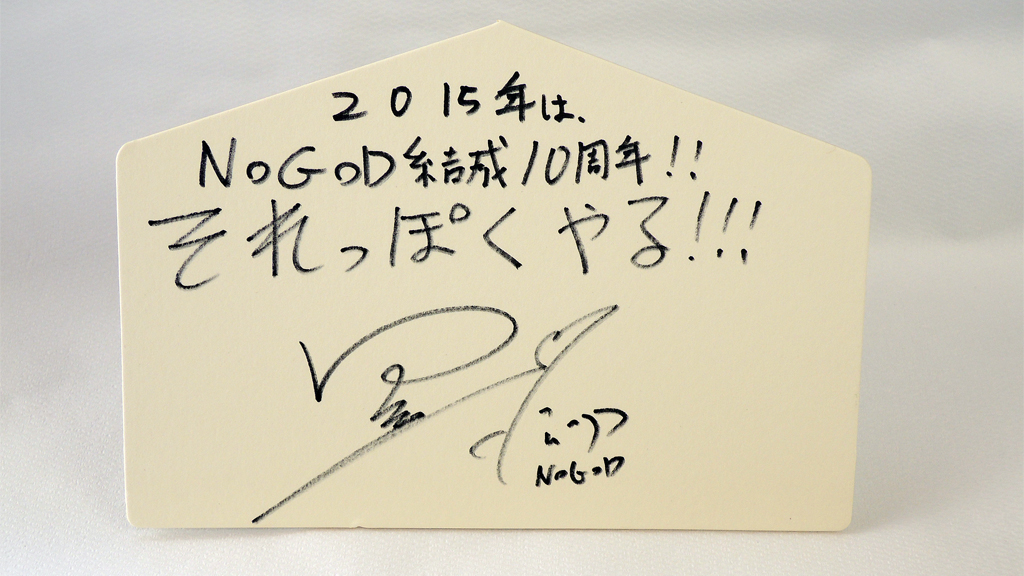 2015年は、
NoGoD結成10周年!!
それっぽくやる!!!
NoGoD